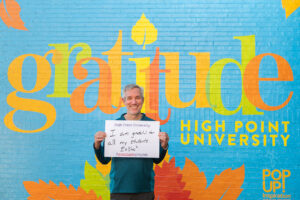 gratitude
HIGH POINT
UNIVERSITY
High Point University
I am grateful for
all my students
POP
UP!
inspiration